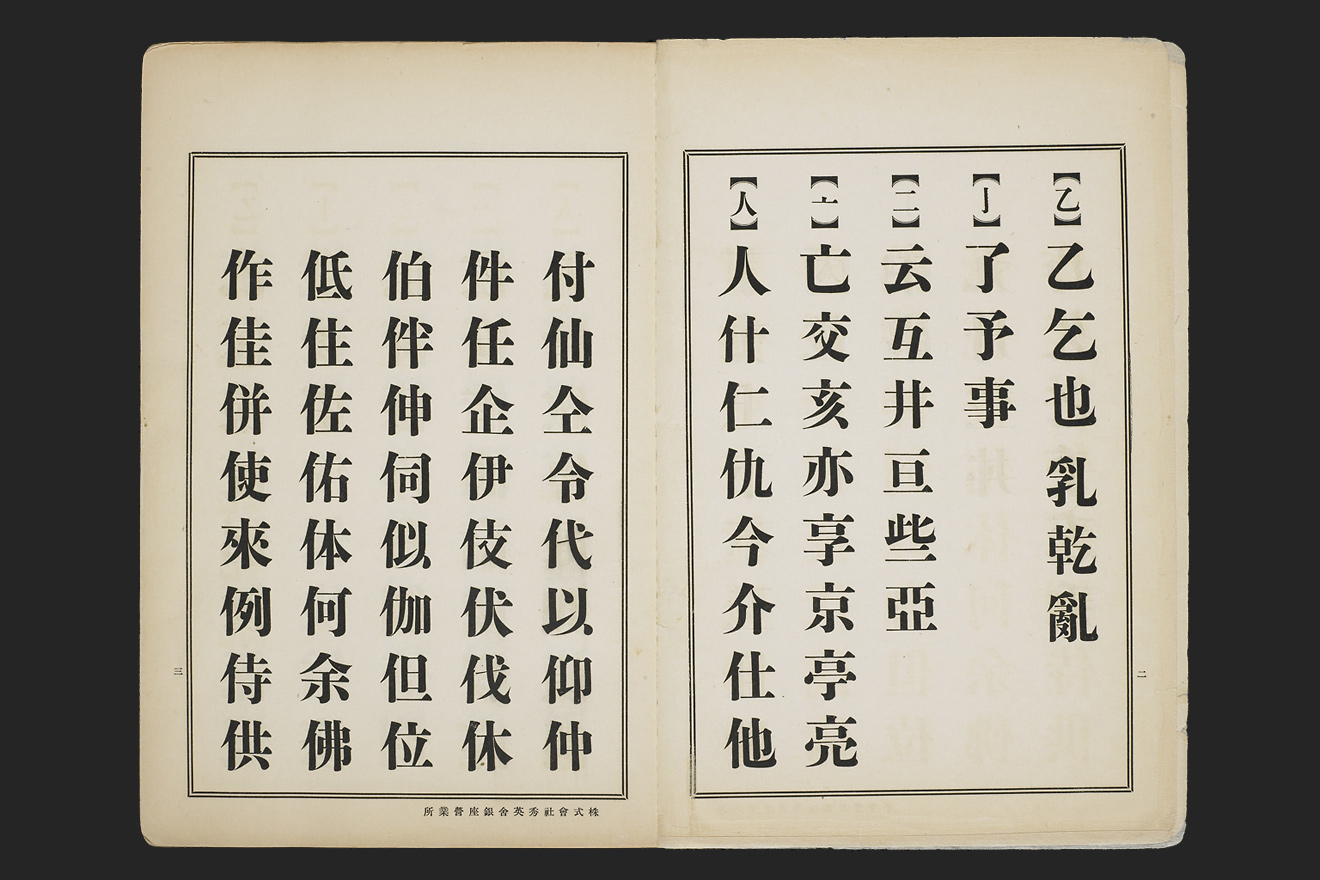 【乙】乙乞也乳乾亂
【亅】了予事
【二】云互井亘些亞
【亠】亡交亥亦享京亭亮
【人】人什仁仇今介仕他
二
付仙仝令代以仰仲
件任企伊伎伏伐休
伯伴伸伺似伽但位
低住佐佑体何余佛
作佳併使來例侍供
三
株式會社秀英舍銀座營業所